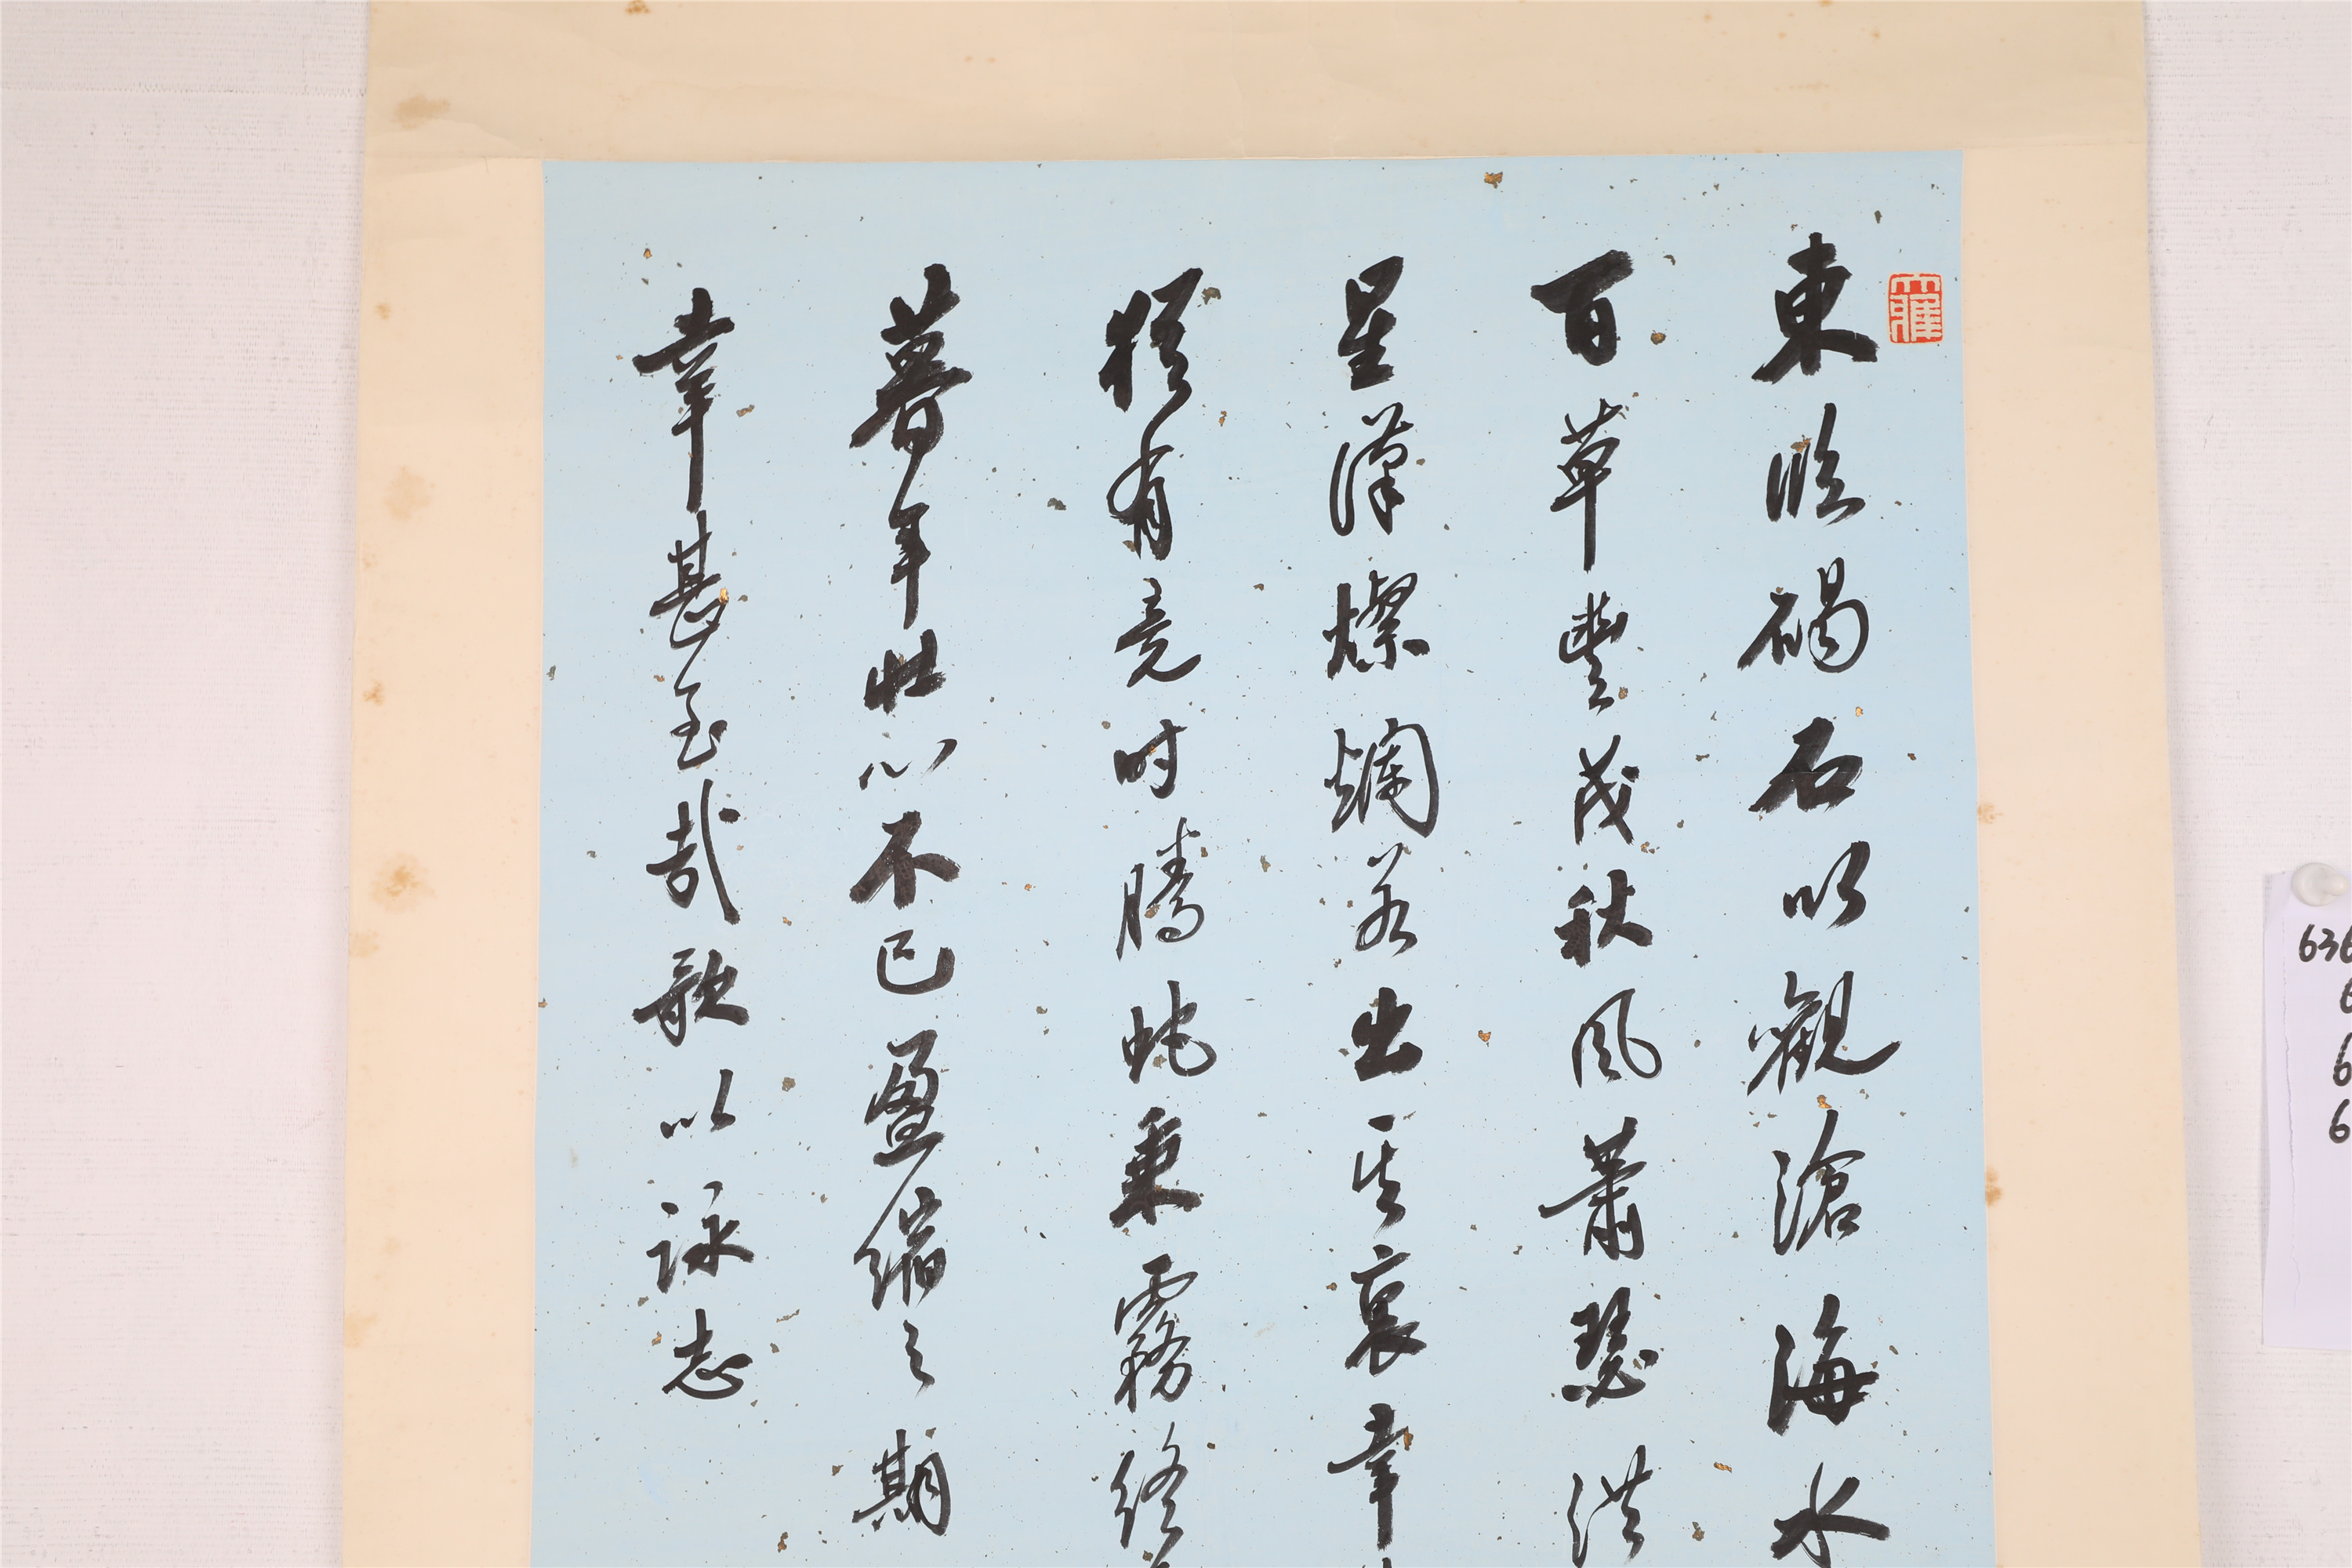 東臨碣石以觀滄海水
百草豐茂秋風蕭瑟洪
星漢燦爛若出其裏幸
猶有竟时騰蛇乘霧終
暮年壯心不已盈縮之期
幸甚至哉歌以詠志
636
6
6
6